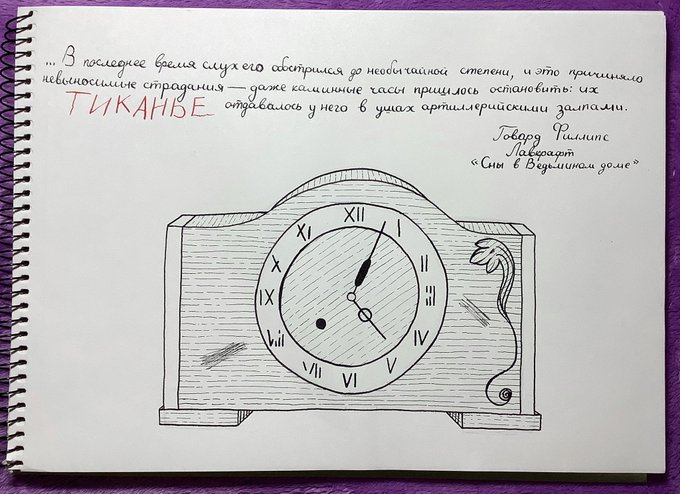 ... В последнее время слух его обострился до необычайной степени, и это причиняло
невыносимые страдания — даже каминные часы пришлось остановить: их
ТИКАНЬЕ отдавалось у него в ушах артиллерийскими залпами.
Говард Филлипс
Лавкрафт
"Сны в Ведьмином доме"
XII
I
II
III
IV
V
VI
VII
VIII
IX
X
XI